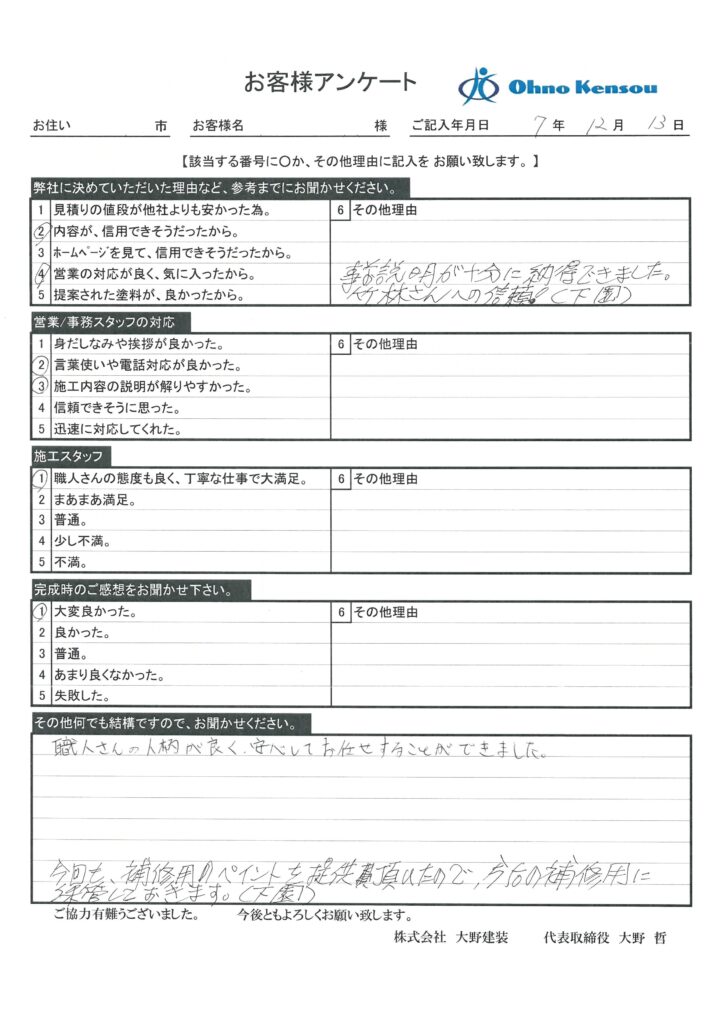 お客様アンケート
Ohno Kensou
お住い 市 お客様名 様 ご記入年月日 7年 12月 13日
【該当する番号に〇か、その他理由に記入を お願い致します。】
弊社に決めていただいた理由など、参考までにお聞かせください。
1 見積りの値段が他社よりも安かった為。 6 その他理由
2 内容が、信用できそうだったから。
3 ホームページを見て、信用できそうだったから。
4 営業の対応が良く、気に入ったから。 事前説明が十分に納得できました。
5 提案された塗料が、良かったから。 竹林さんへの信頼!(下園)
営業/事務スタッフの対応
1 身だしなみや挨拶が良かった。 6 その他理由
2 言葉使いや電話対応が良かった。
3 施工内容の説明が解りやすかった。
4 信頼できそうに思った。
5 迅速に対応してくれた。
施工スタッフ
1 職人さんの態度も良く、丁寧な仕事で大満足。 6 その他理由
2 まあまあ満足。
3 普通。
4 少し不満。
5 不満。
完成時のご感想をお聞かせ下さい。
1 大変良かった。 6 その他理由
2 良かった。
3 普通。
4 あまり良くなかった。
5 失敗した。
その他何でも結構ですので、お聞かせください。
職人さんの人柄が良く、安心してお任せすることができました。
今回も、補修用のペイントを提供頂いたので、今后の補修用に
保管しておきます。(下園)
ご協力有難うございました。 今後ともよろしくお願い致します。
株式会社 大野建装 代表取締役 大野 哲